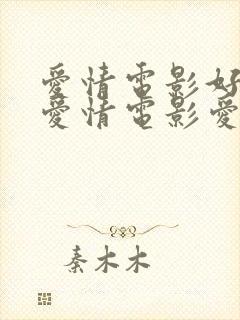 愛情電影好
愛情電影愛
秦木木